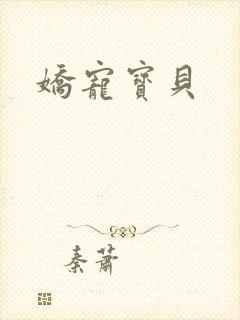 嬌寵寶貝
秦蕭